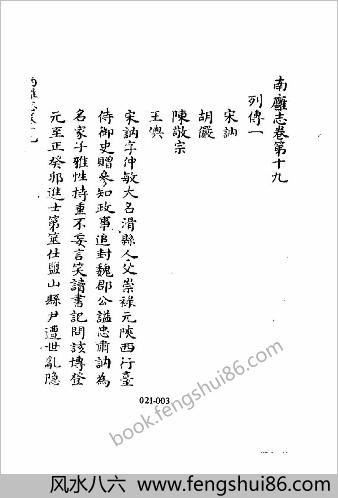 南廱志卷第十九
列傳一
宋訥
胡儼
陳敬宗
王㒜
宋訥字仲敏大名滑縣人父崇祿元陝西行臺
侍御史贈參知政事追封魏郡公諡忠肅訥為
名家子雅性持重不妄言笑讀書記問該博登
元至正癸卯進士第筮仕鹽山縣尹遭世亂隐
021-003
book.fengshui86.com
风水八六 www.fengshui86.com